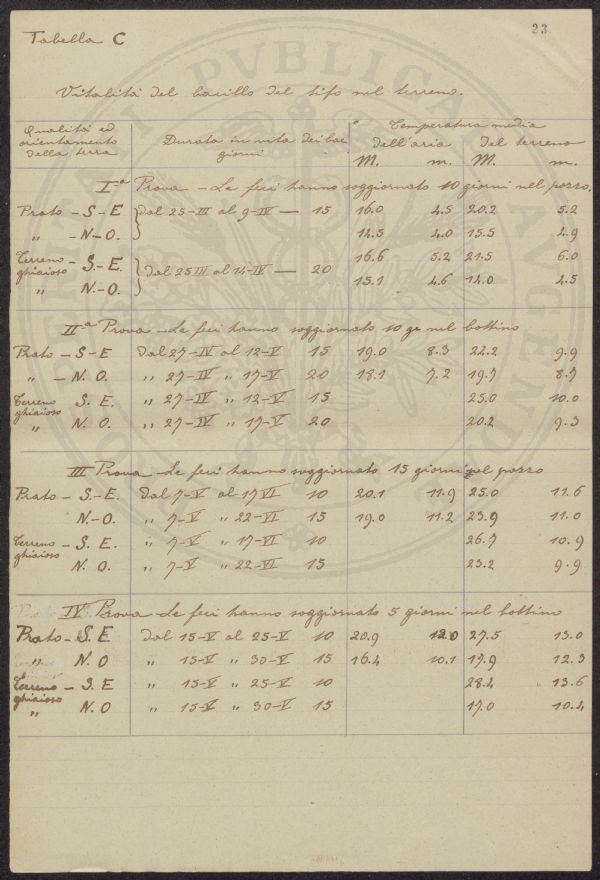 23
Tabella C
Vitalità del bacillo del tifo nel terreno.
Qualità ed orientamento della terra | Durata in vita dei bac giorni | Temperatura media dell'aria M. m. | del terreno M. m.
Iª Prova - Le feci hanno soggiornato 10 giorni nel pozzo.
Prato - S - E dal 25-III al 9-IV — 15 16.0 4.5 20.2 5.2
" - N - O. 14.5 4.0 15.5 4.9
Terreno ghiaioso - S. - E. dal 25 III al 14-IV — 20 16.6 5.2 21.5 6.0
" N. - O. 15.1 4.6 14.0 4.5
IIª Prova - Le feci hanno soggiornato 10 gi nel bottino
Prato - S - E dal 27-IV al 12-V 15 19.0 8.3 22.2 9.9
" - N. O. " 27-IV " 17-V 20 18.1 7.2 19.7 8.7
Terreno ghiaioso S. E. " 27-IV " 12-V 15 25.0 10.0
" N. O. " 27-IV " 17-V 20 20.2 9.3
III Prova - Le feci hanno soggiornato 15 giorni nel pozzo
Prato - S. - E. dal 7-V al 17 VI 10 20.1 11.9 25.0 11.6
N. - O. " 7-V " 22-VI 15 19.0 11.2 23.9 11.0
Terreno ghiaioso - S. E. " 7-V " 17-VI 10 26.7 10.9
N. O. " 7-V " 22-VI 15 23.2 9.9
IV Prova - Le feci hanno soggiornato 5 giorni nel bottino
Prato - S. E dal 15-V al 25-V 10 20.9 12.0 27.5 13.0
" N. O " 15-V " 30-V 15 16.4 10.1 17.9 12.3
Terreno ghiaioso - S. E " 15-V " 25-V 10 28.4 13.6
" N. O " 15-V " 30-V 15 17.0 10.4